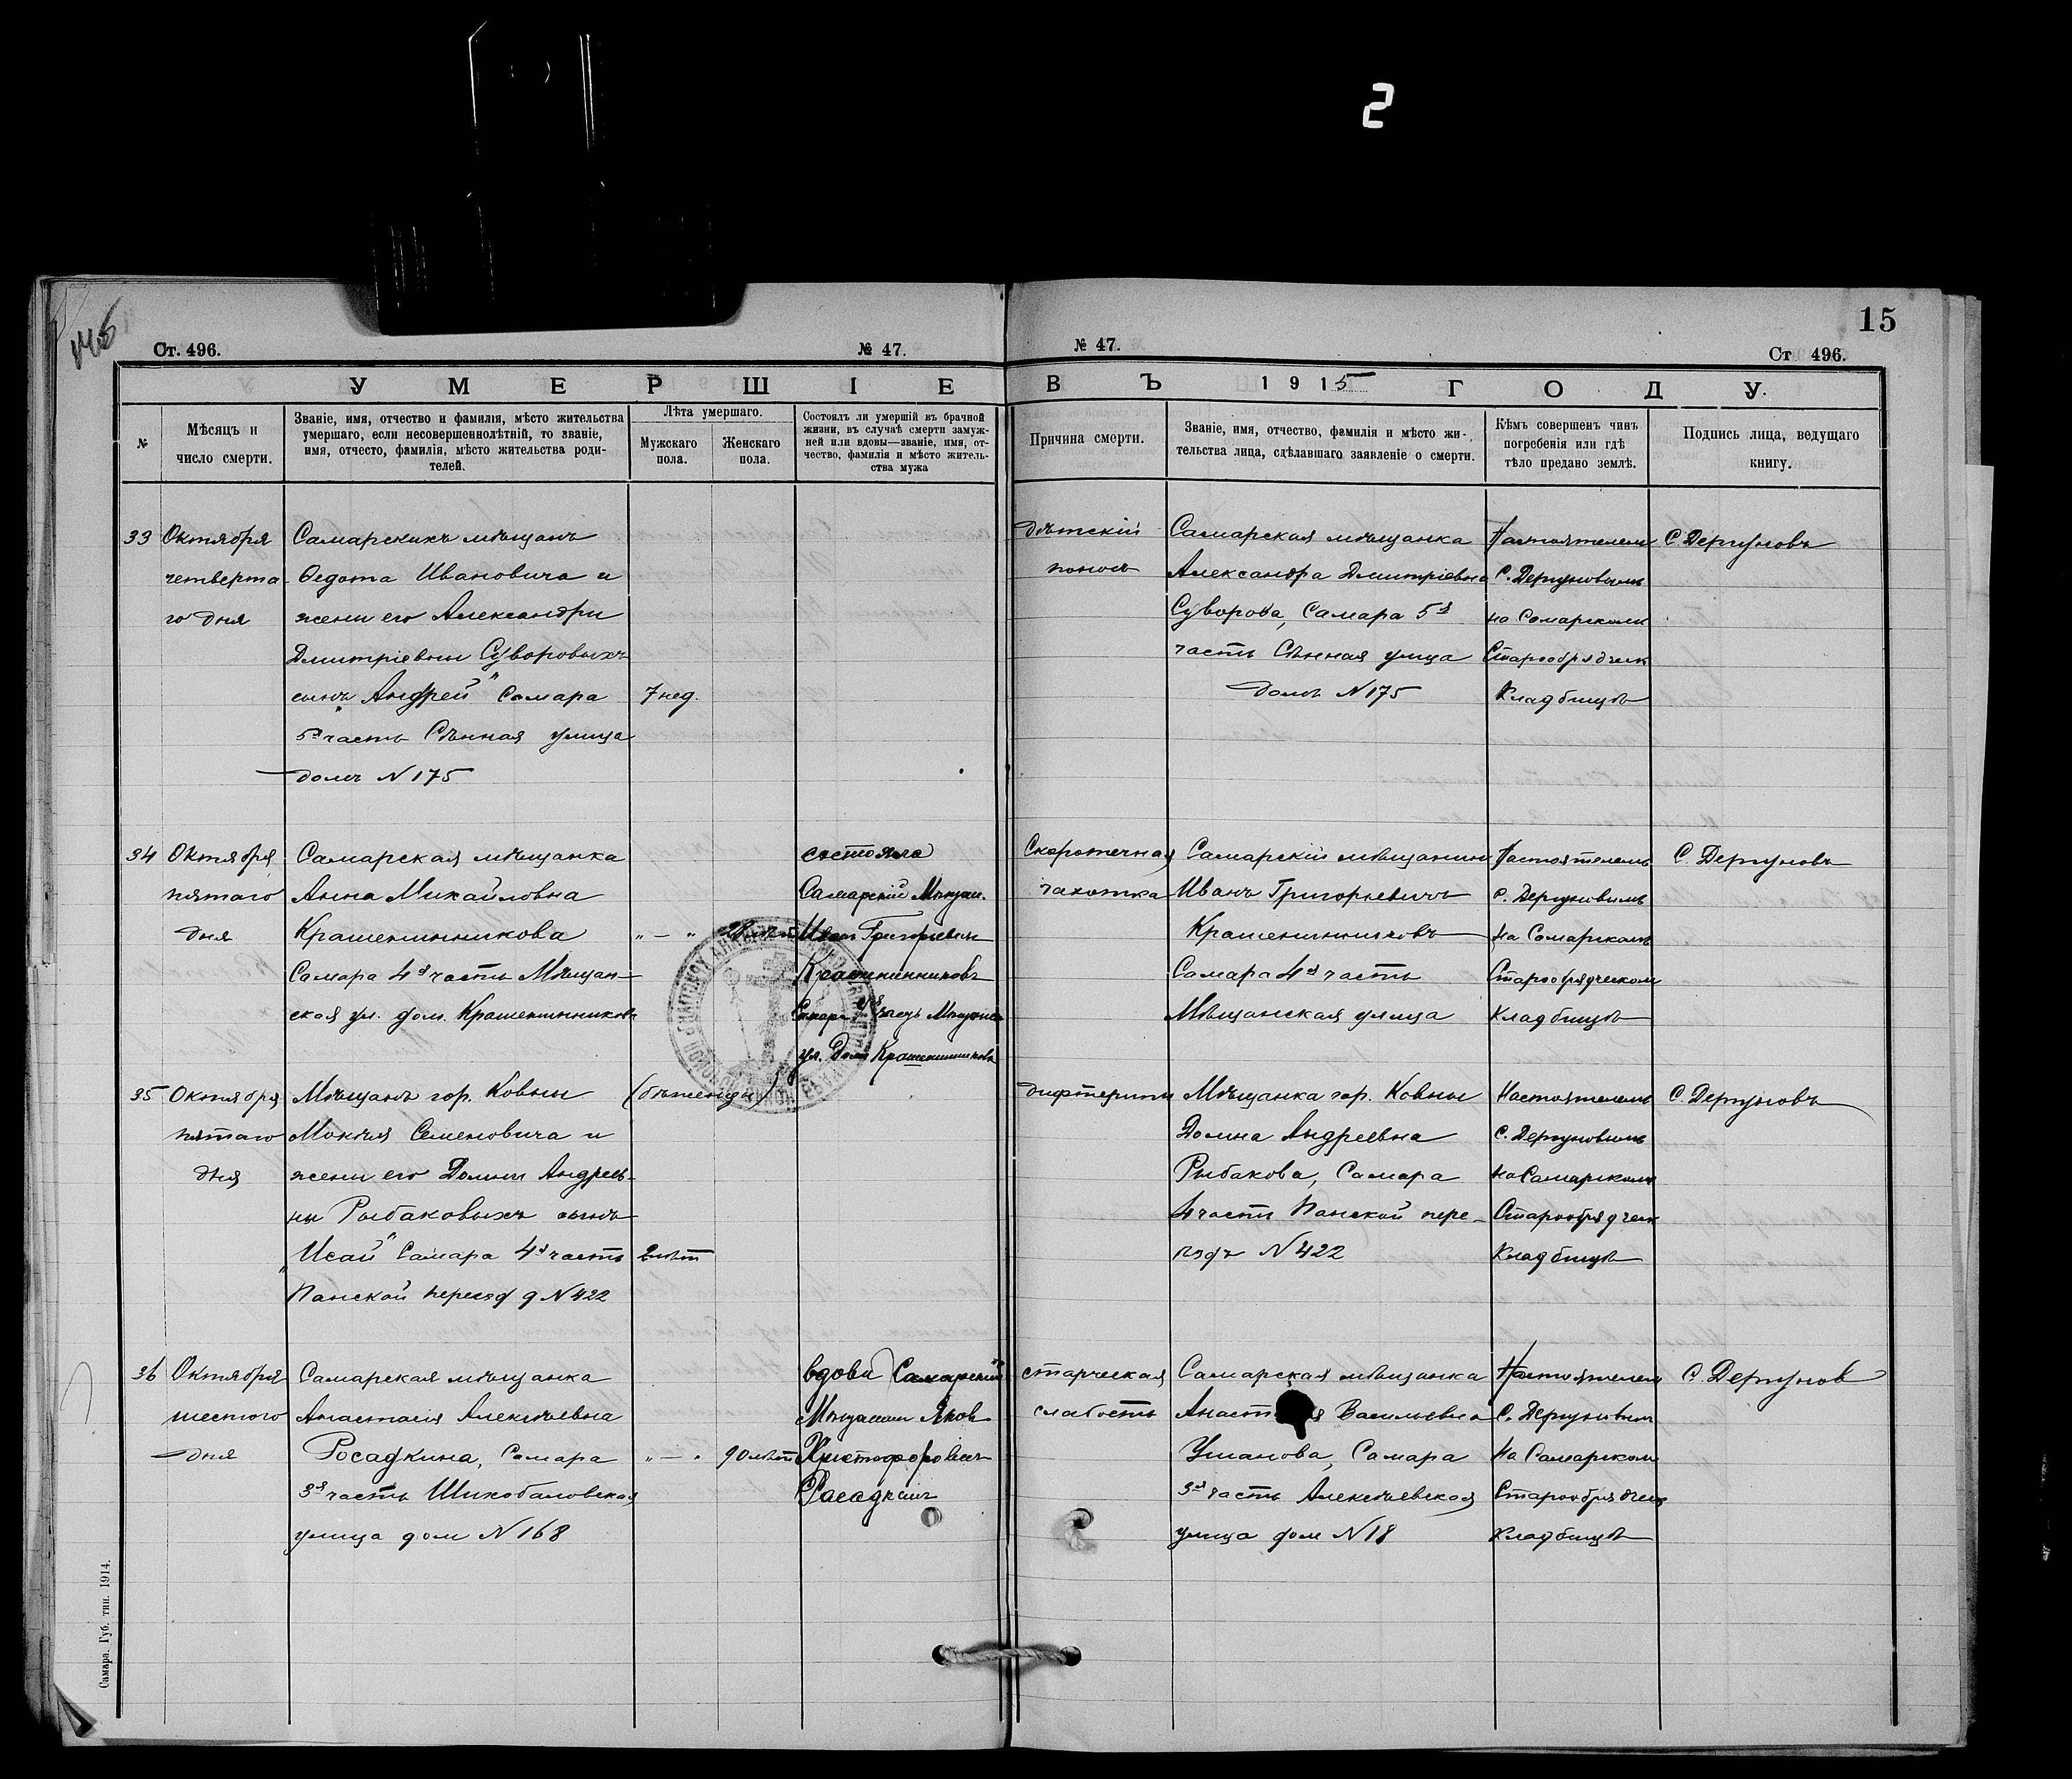 2
15
Ст. 496.
№ 47.
№ 47.
Ст 496.
УМЕРШІЕ
ВЪ 1915 ГОДУ.
№
Мѣсяцъ и
число смерти.
Званіе, имя, отчество и фамилія, мѣсто жительства
умершаго, если несовершеннолѣтній, то званіе,
имя, отчесто, фамилія, мѣсто жительства роди-
телей.
Лѣта умершаго.
Мужскаго
пола.
Женскаго
пола.
Состоялъ ли умершій въ брачной
жизни, въ случаѣ смерти замуж-
ней или вдовы—званіе, имя, от-
чество, фамилія и мѣсто житель-
ства мужа
Причина смерти.
Званіе, имя, отчество, фамилія и мѣсто жи-
тельства лица, сдѣлавшаго заявленіе о смерти.
Кѣмъ совершенъ чинъ
погребенія или гдѣ
тѣло предано землѣ.
Подпись лица, ведущаго
книгу.
33
Октября
четверта-
го дня
Самарскихъ мѣщанъ
Федота Ивановича и
жены его Александры
Дмитріевны Суворовыхъ
сынъ „Андрей“ Самара
5я часть Сѣнная улица
домъ N 175
7 нед.
дѣтскій
поносъ
Самарская мѣщанка
Александра Дмитріевна
Суворова, Самара 5я
часть Сѣнная улица
домъ N 175
Настоятелем
С. Дергуновымъ
на Самарском
Старообрядческ
Кладбищѣ
С Дергуновъ
34
Октября
пятаго
дня
Самарская мѣщанка
Анна Михайловна
Крашенинникова
Самара 4я часть Мѣщан-
ская ул. дом. Крашенинникова
„ — „
состояла
Самарскій Мѣщан.
Иван Григорьевич
Крашенинниковъ
Самара 4я часть Мѣщанск
ул. Домъ Крашенинникова
Скоротечная
чахотка
Самарскій мѣщанин
Иванъ Григорьевичъ
Крашенинниковъ
Самара 4я часть
Мѣщанская улица
Настоятелемъ
С. Дергуновымъ
На Самарскомъ
Старообрядческом
Кладбищѣ
С. Дергуновъ
35
Октября
пятаго
дня
Мѣщанъ гор. Ковны
Мокѣя Семеновича и
жены его Домны Андреев-
ны Рыбаковыхъ сынъ
„Исай“ Самара 4я часть
Панской переезд д N 422
(бѣженцы)
2 лѣт
дифтеритъ
Мѣщанка гор. Ковны
Домна Андреевна
Рыбакова, Самара
4 части Панской пере-
ѣздъ N 422
Настоятелемъ
С. Дергуновымъ
на Самарском
Старообрядческ
Кладбищѣ
С. Дергуновъ
36
Октября
шестого
дня
Самарская мѣщанка
Анастасія Алексѣевна
Росадкина, Самара
3я часть Шихобаловская
улица дом N 168
„ — „
90 лѣт
вдова Самарскій
Мѣщанин Яков
Христофорович
Расадкинъ
старческая
слабость
Самарская мѣщанка
Васильевна
Ушанова, Самара
3я часть Алексѣевская
улица дом N 18
Настоятелем
С. Дергуновым
На Самарском
Старообрядческ
Кладбищѣ
С. Дергунов
Самара. Губ. тип. 1914.